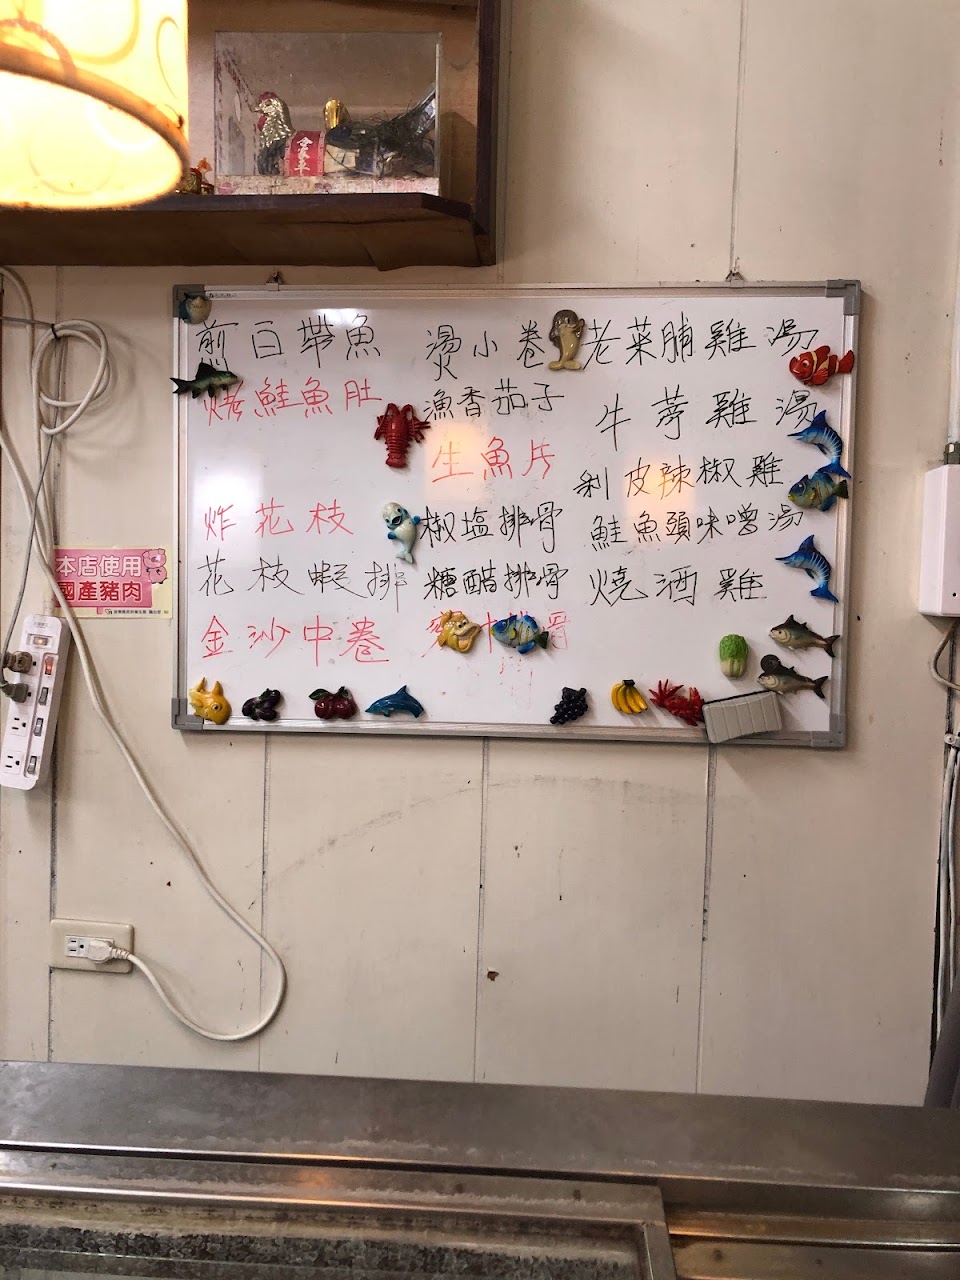 合家平
煎白帶魚
烤鮭魚肚
炸花枝
花枝蝦排
金沙中卷
燙小卷
漁香茄子
生魚片
椒塩排骨
糖醋排骨
排骨
老菜脯雞湯
牛蒡雞湯
剥皮辣椒雞
鮭魚頭味噌湯
燒酒雞
本店使用
國產豬肉